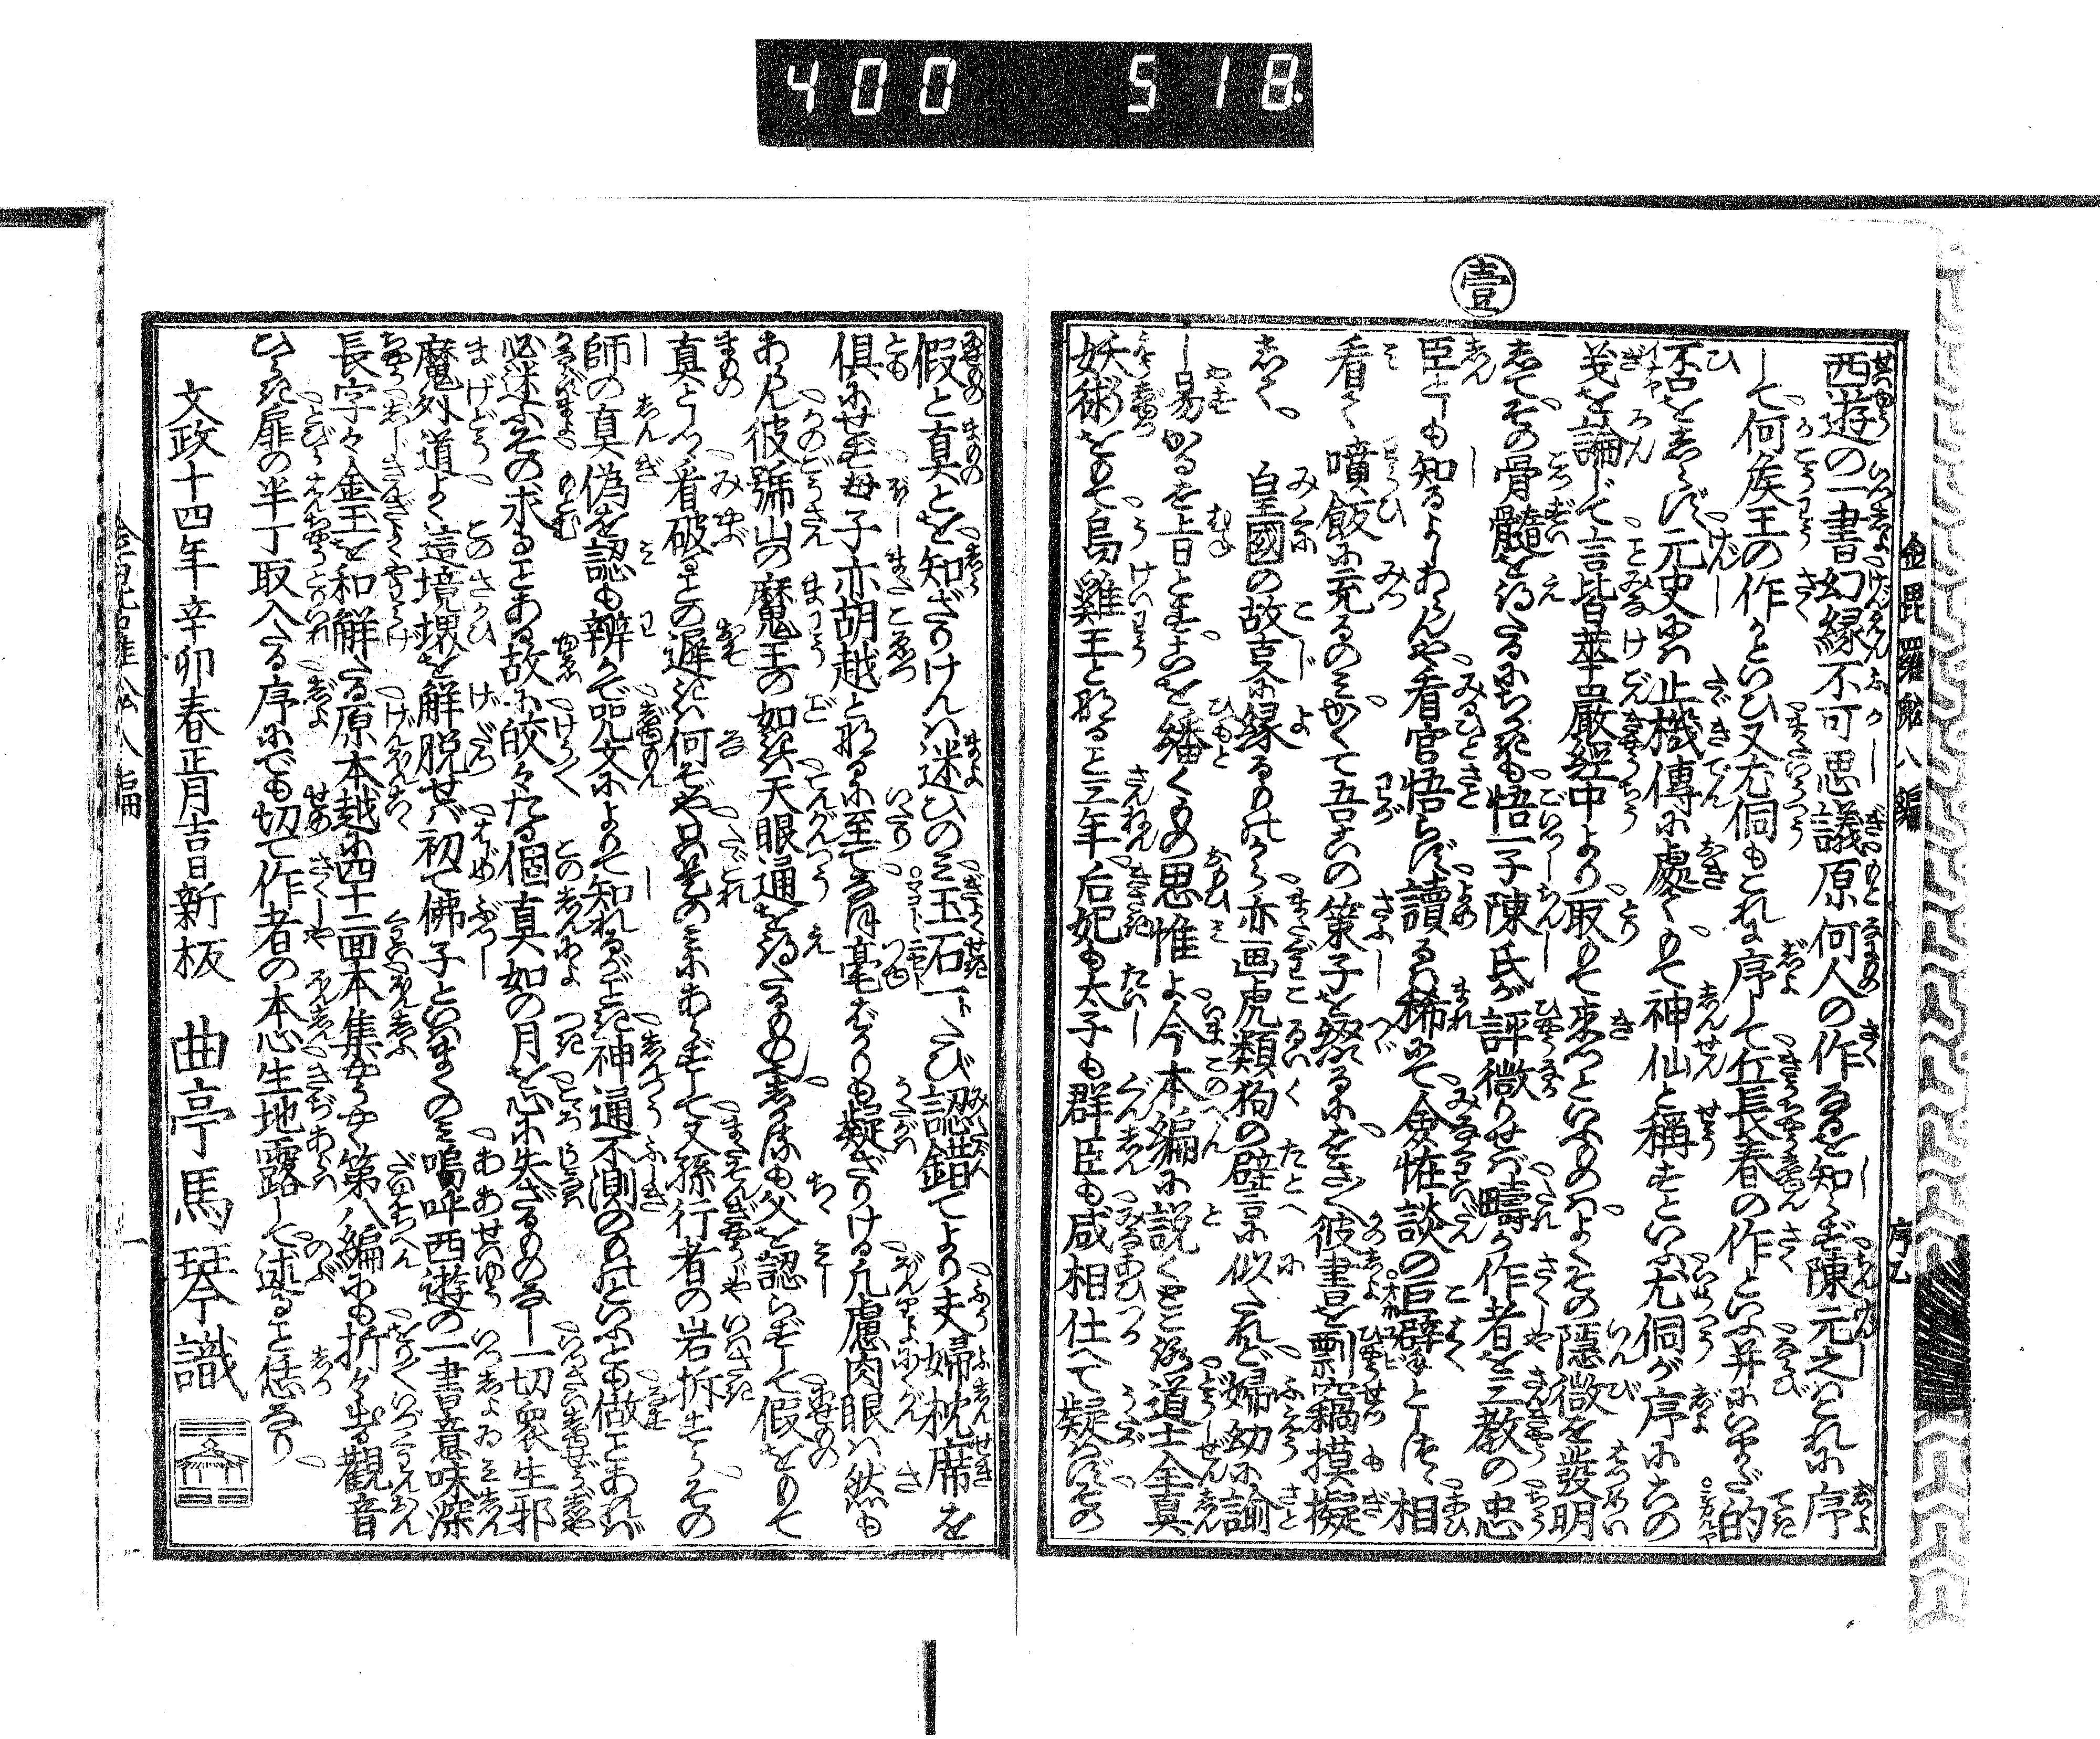 400 518.
壹
金毘羅舩八編
序乙
西遊の一書幻縁不可思議原何人の作なるを知らず陳元之これに序
して何侯王の作かといひ又尤侗もこれに序して丘長春の作といふ并にいまだ的
否をしらず元史には止機傳に處てもて神仙と稱すといふ尤侗が序にこの
義を論じて言皆華嚴経中より取もて来つといふめりよくその隱微を發明
してその骨髓を得たるにちかきも悟一子陳氏が評微りせば疇か作者を三教の忠
臣としも知るよしあらんや看官悟らず讀るも稀にて僉恠談の巨擘としつ相
看て噴飯に充るのみかくて吾この策子を綴るにをさへ彼書を剽竊摸擬
して
皇國の故事に縁るものから亦画虎類狗の譬言に似たれど婦幼に諭
し易かるを旨とすこれを繙くもの思惟よ今本編に説くところ道士全真
妖術をもて烏雞王と化ると三年后妃も太子も群臣も咸相仕へて疑はずその
假と真とを知ざりけんは迷ひのみ玉石一トたび認錯てより夫婦枕席を
倶にせず母子亦胡越と化るに至て毫ばかりも疑ざりける凡慮肉眼は然も
あらん彼號山の魔王の如は天眼通を得たるもの志かも父を認らずして假をもて
真とし看破ることの遲きは何ぞや只是のみにあらずして又孫行者の岩拆すらその
師の真偽を認も辨かで咒文によりて知れるがごとき神通不測のものといふとも做ことあれば
必迷ふその求ることある故に皎々たる個真如の月を心に失ざるものなし一切衆生邪
魔外道よく這境堺を解脱せば初て佛子といはまくのみ嗚呼西遊の一書意味深
長字々金玉を和解たる原本越に四十二回本集無慮第八編にも折から出る觀音
ひらき扉の半丁取入たる序にでも切て作者の本心生地露して述ること恁なり
文政十四年辛卯春正月吉日新板　曲亭馬琴識